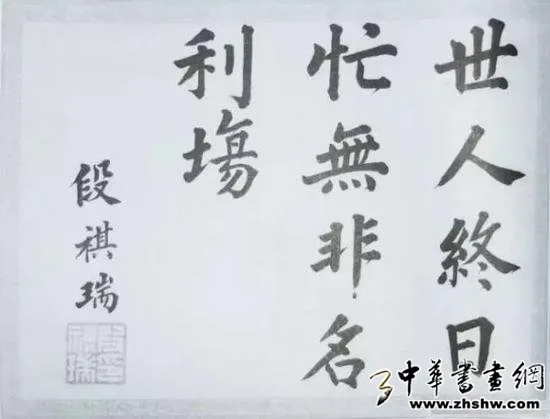 世人終日
忙無非名
利場
段祺瑞
中華書畫網
www.zhshw.com